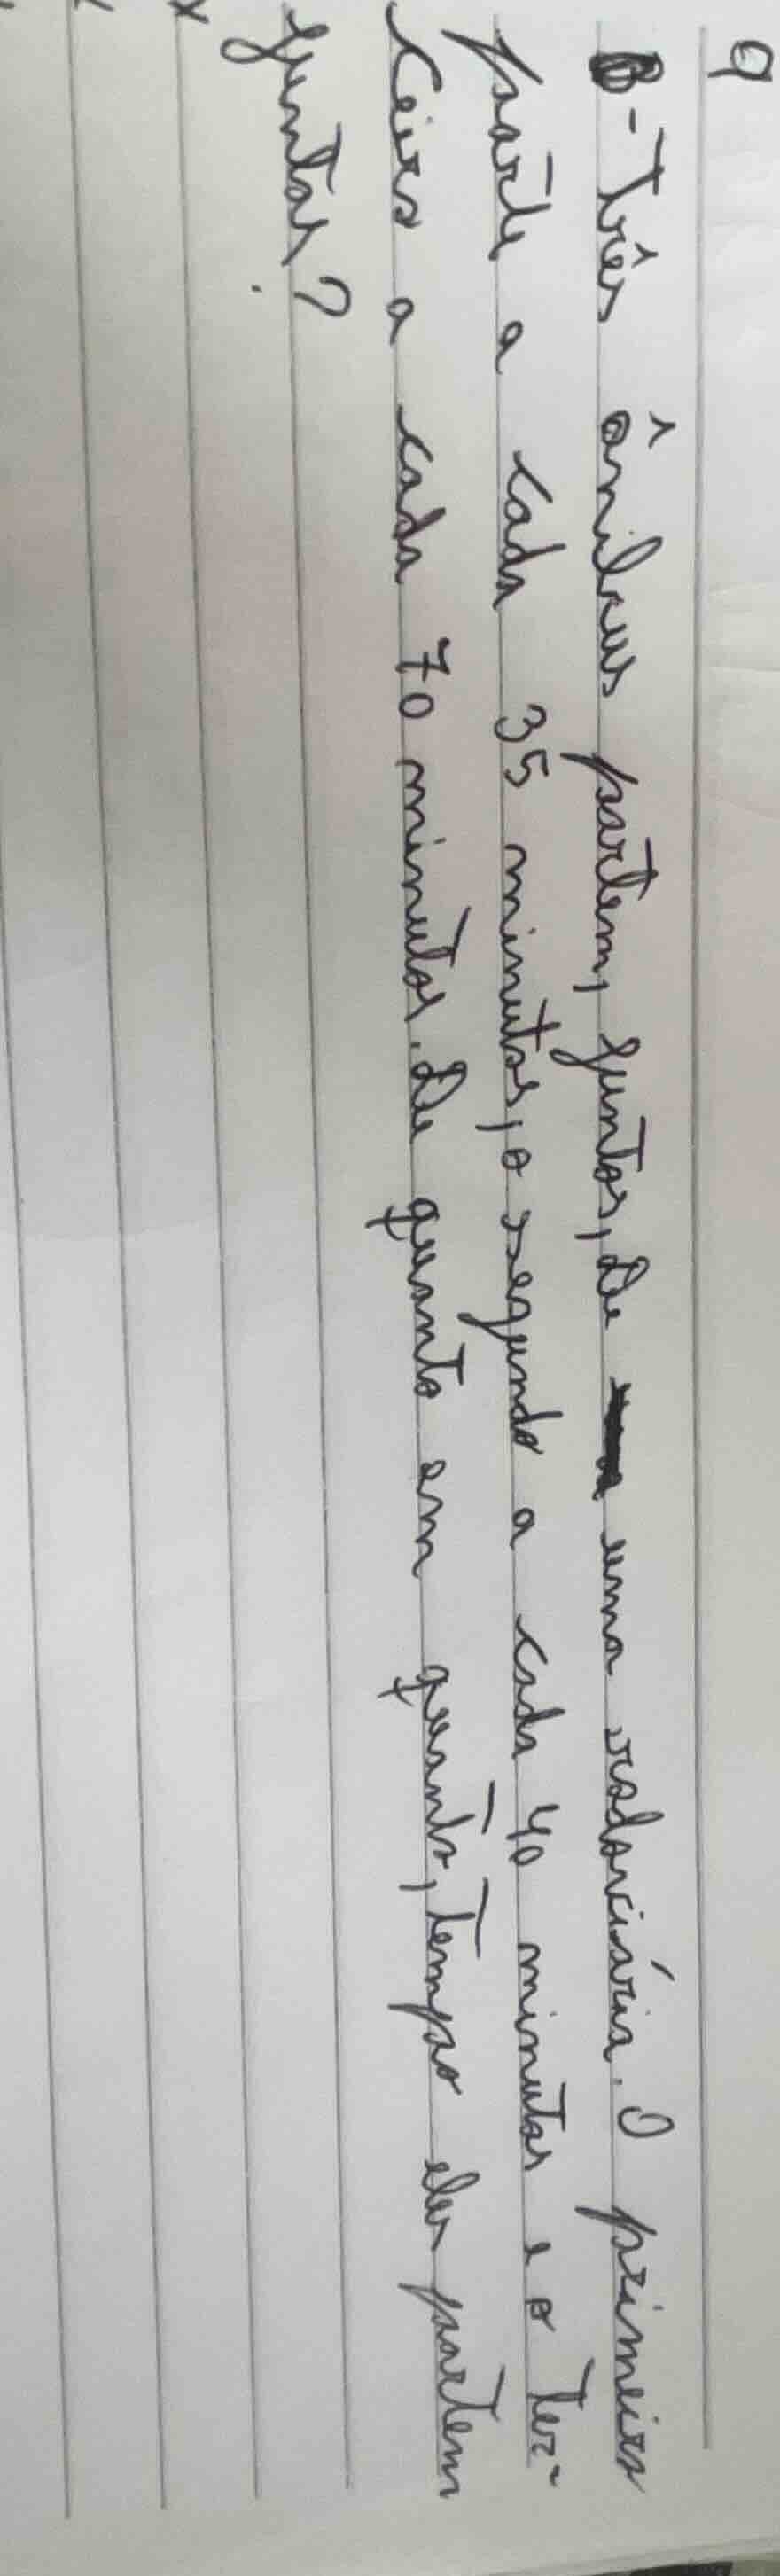 9
B-Três ônibus partem, juntos, de uma rodoviária. O primeiro
parte a cada 35 minutos, o segundo a cada 40 minutos e o ter-
ceiro a cada 70 minutos. De quanto em quanto, tempo eles partem
juntos?